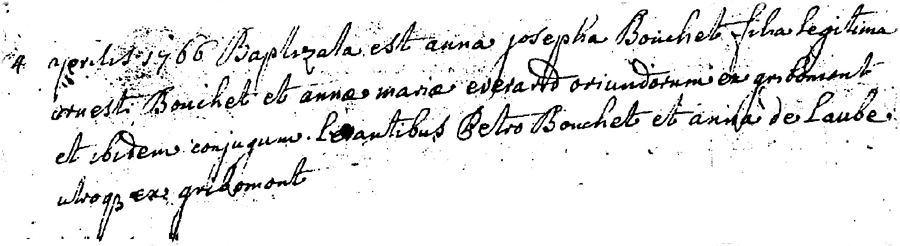 4 aprilis 1766 Baptizata est anna josepha Bouchet filia legitima
ernesti Bouchet et annæ mariæ everard oriundorum ex gribomont
et ibidem conjugum. levantibus Petro Bouchet et anna de Laube
utroqꝫ ex gribomont